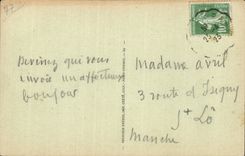 Devinez qui vous
envoie un affectueux
bonjour
Madame Avril
3 route d'Isigny
St Lô
Manche